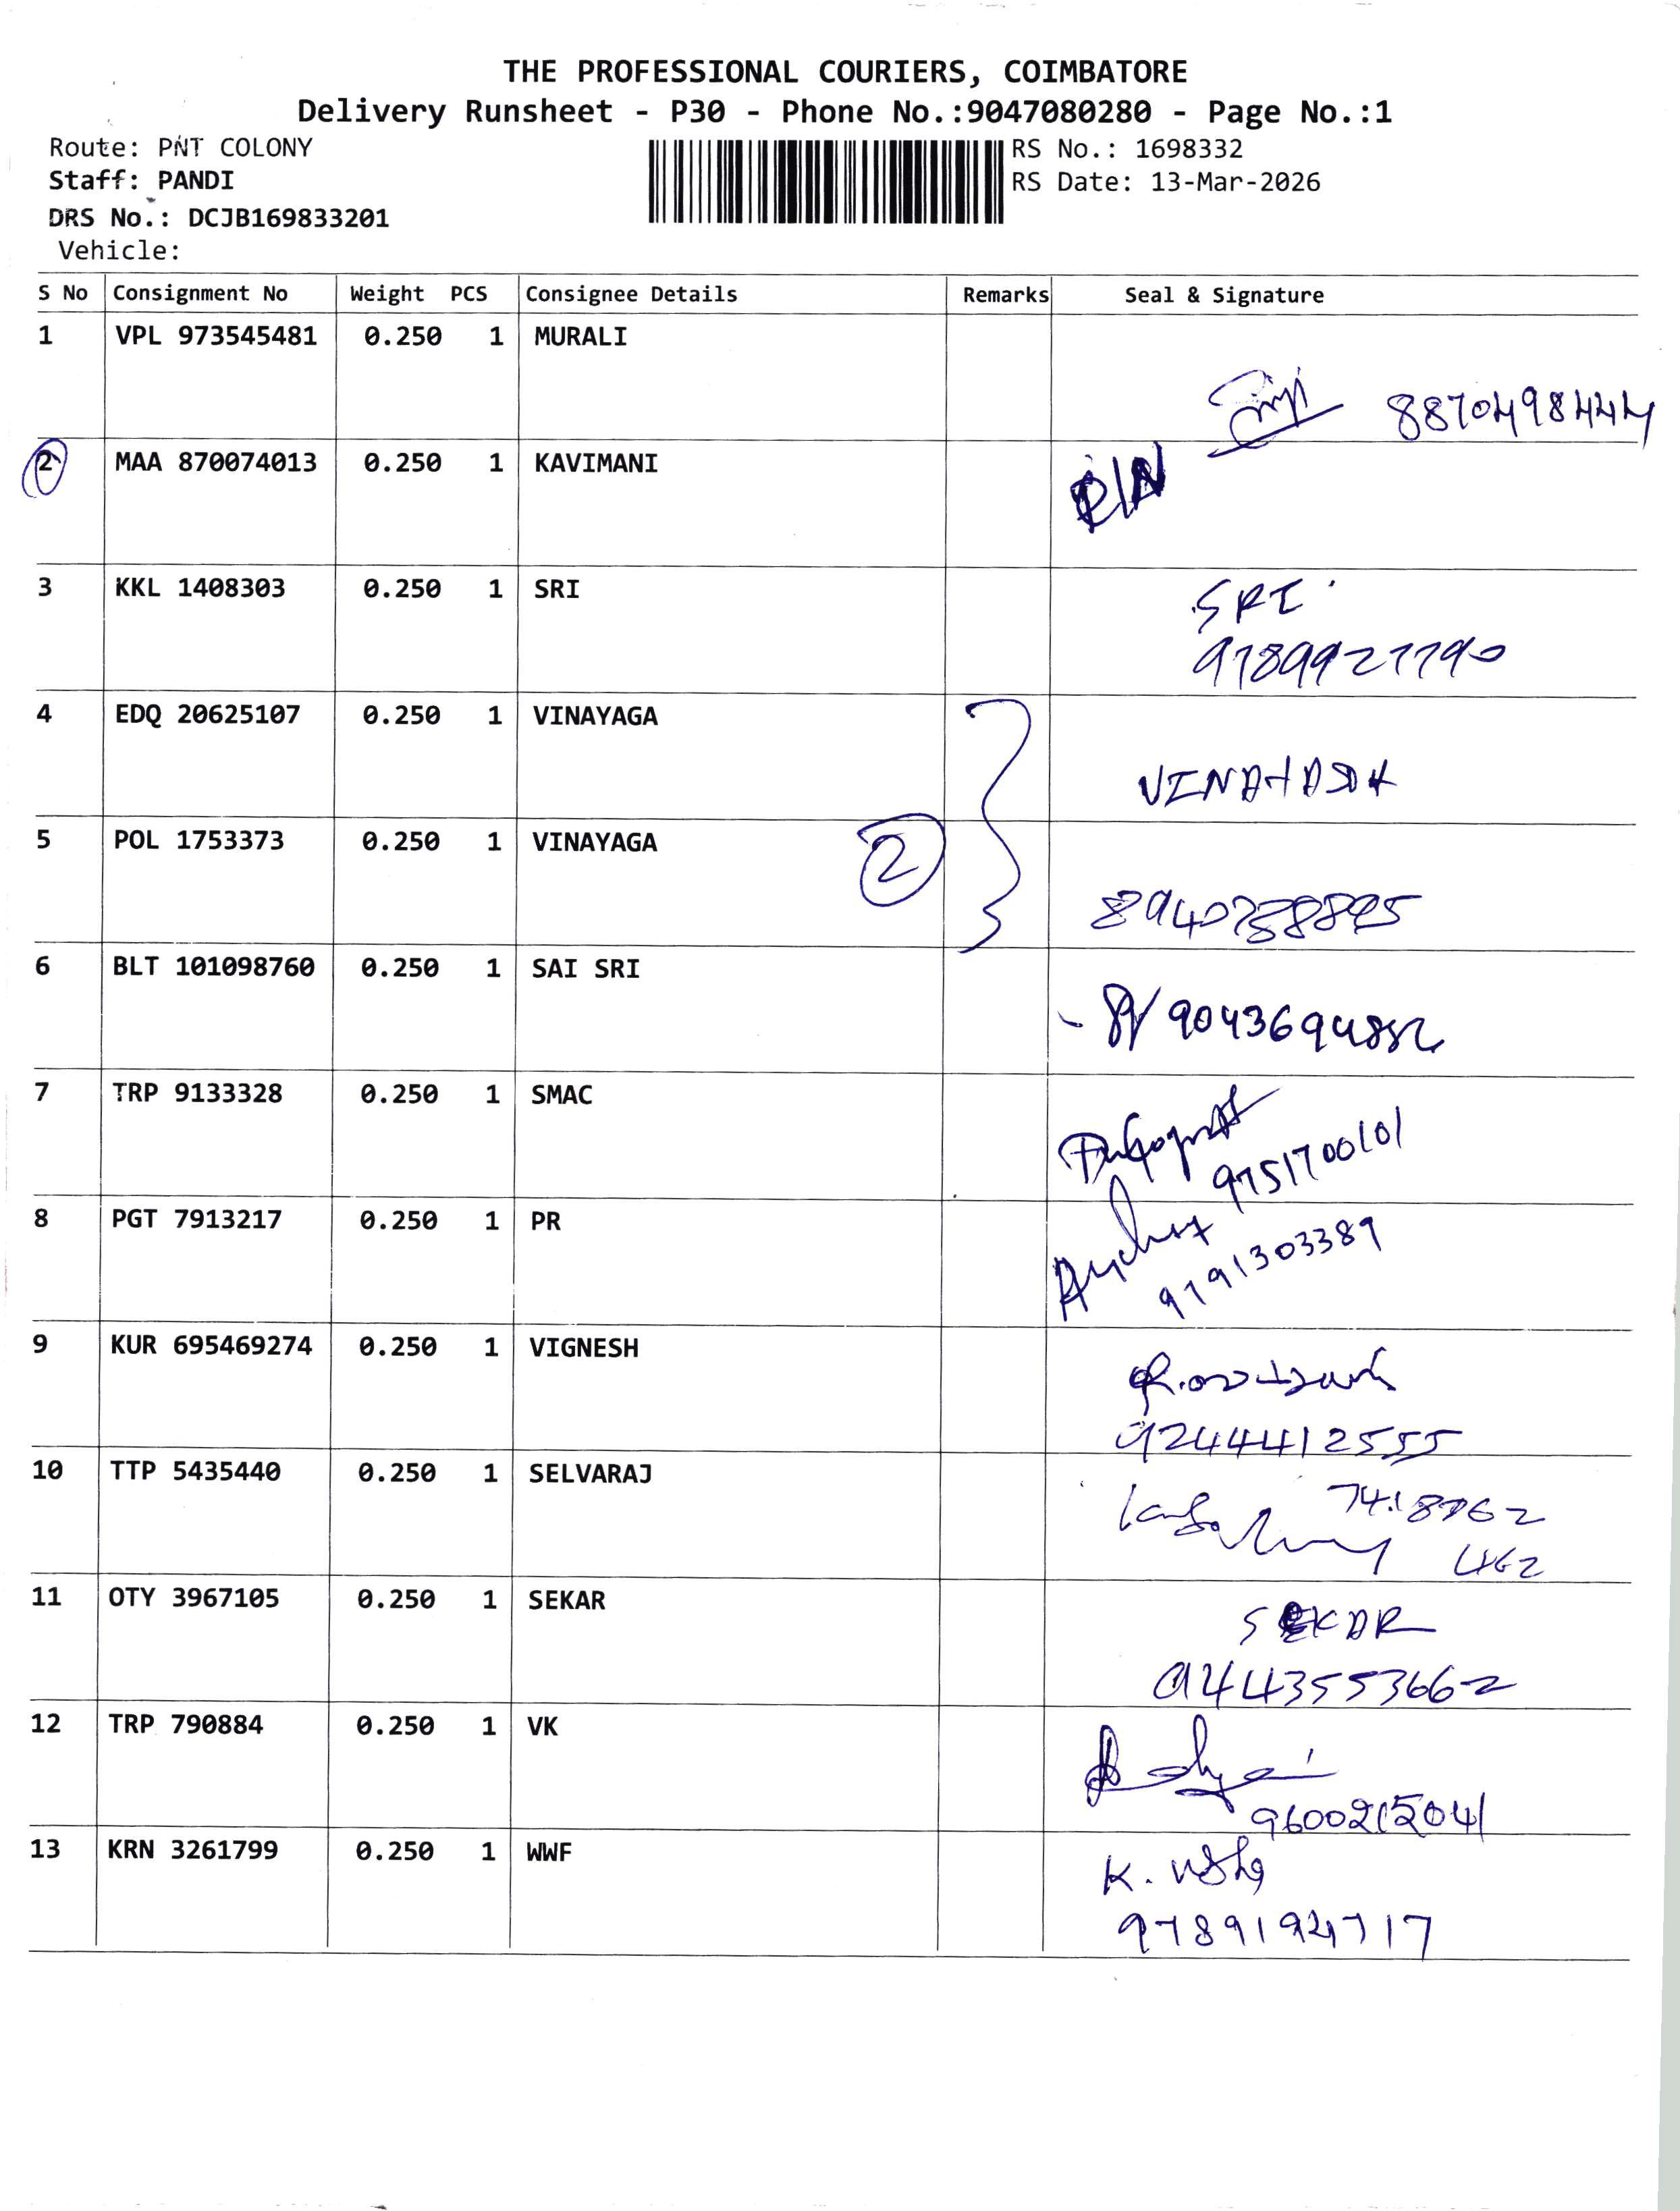 THE PROFESSIONAL COURIERS, COIMBATORE
Delivery Runsheet - P30 - Phone No.:9047080280 - Page No.:1
Route: PNT COLONY
RS No.: 1698332
Staff: PANDI
RS Date: 13-Mar-2026
DRS No.: DCJB169833201
Vehicle:
S No Consignment No Weight PCS Consignee Details Remarks Seal & Signature
1 VPL 973545481 0.250 1 MURALI
8870498444
2 MAA 870074013 0.250 1 KAVIMANI
3 KKL 1408303 0.250 1 SRI
SRI
9789927790
4 EDQ 20625107 0.250 1 VINAYAGA
5 POL 1753373 0.250 1 VINAYAGA
2
6 BLT 101098760 0.250 1 SAI SRI
7 TRP 9133328 0.250 1 SMAC
9751700101
8 PGT 7913217 0.250 1 PR
9791303389
9 KUR 695469274 0.250 1 VIGNESH
9244412555
10 TTP 5435440 0.250 1 SELVARAJ
11 OTY 3967105 0.250 1 SEKAR
SEKAR
9443553662
12 TRP 790884 0.250 1 VK
9600215041
13 KRN 3261799 0.250 1 WWF
K. Usha